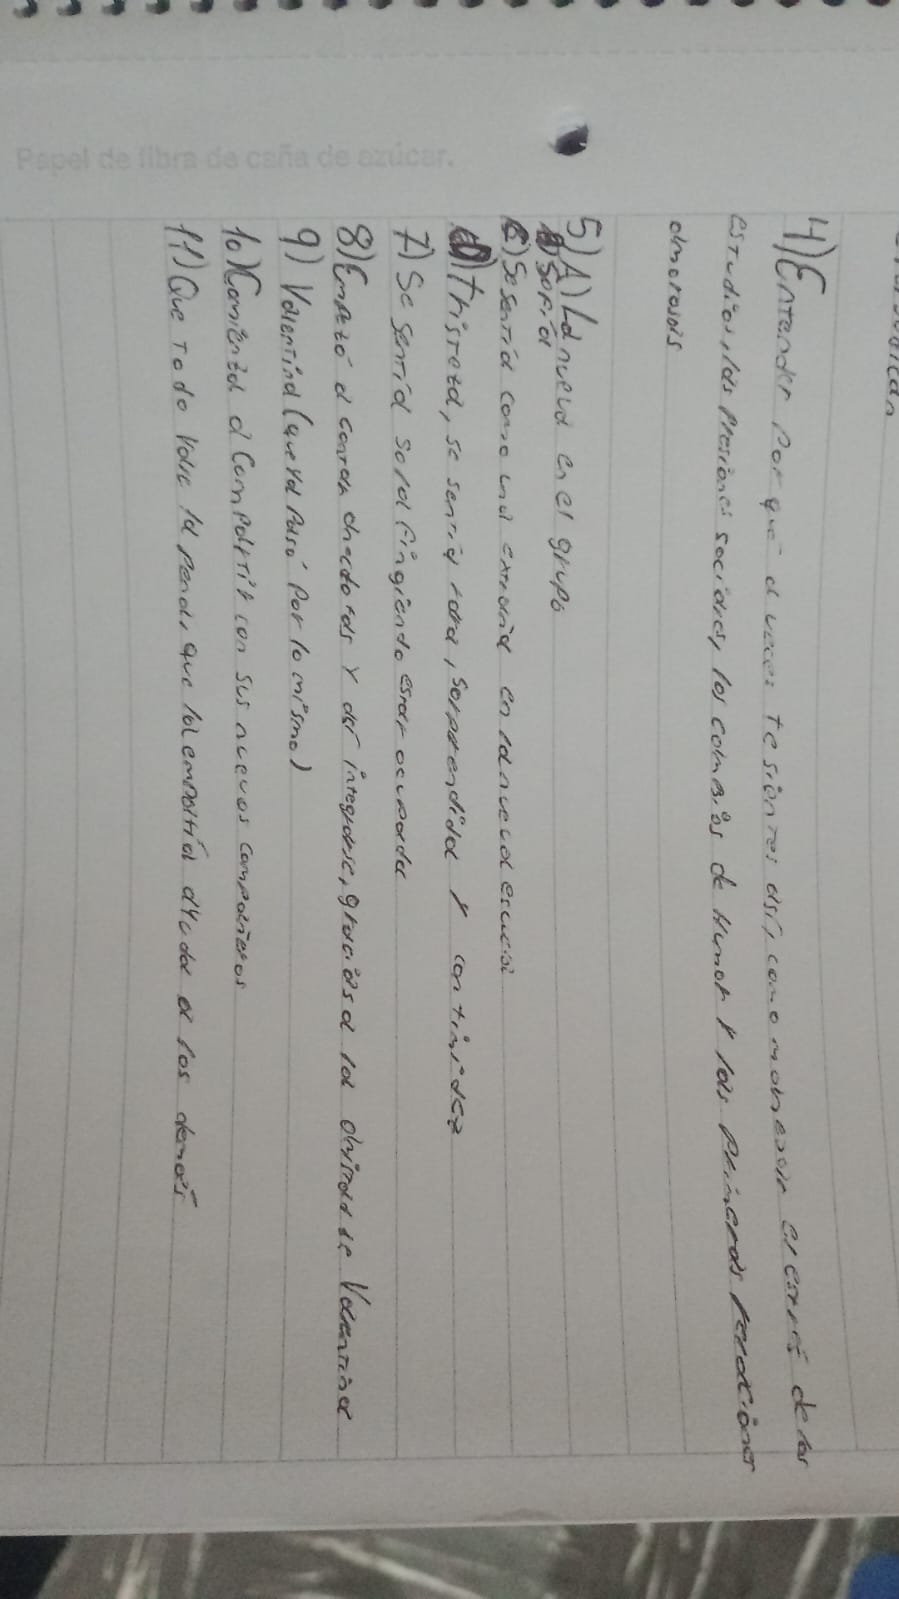 Papel de fibra de caña de azúcar.
4) Entender por qué a veces te sientes así, como manejar el estrés de los
estudios, las presiones sociales, los cambios de humor y las primeras relaciones
amorosas
5) A) La nueva en el grupo
B) Sofía
C) Se sentía como una extraña en la nueva escuela
D) tristeza, se sentía rara, sorprendida y con timidez
7) Se sentía sola fingiendo estar ocupada
8) Empezó a contar anécdotas y a integrarse, gracias a la de Valentina
9) Valentina (que ya pasó por lo mismo)
10) Comienza a compartir con sus nuevos compañeros
11) Que todo vale la pena, que la empatía ayuda a los demás